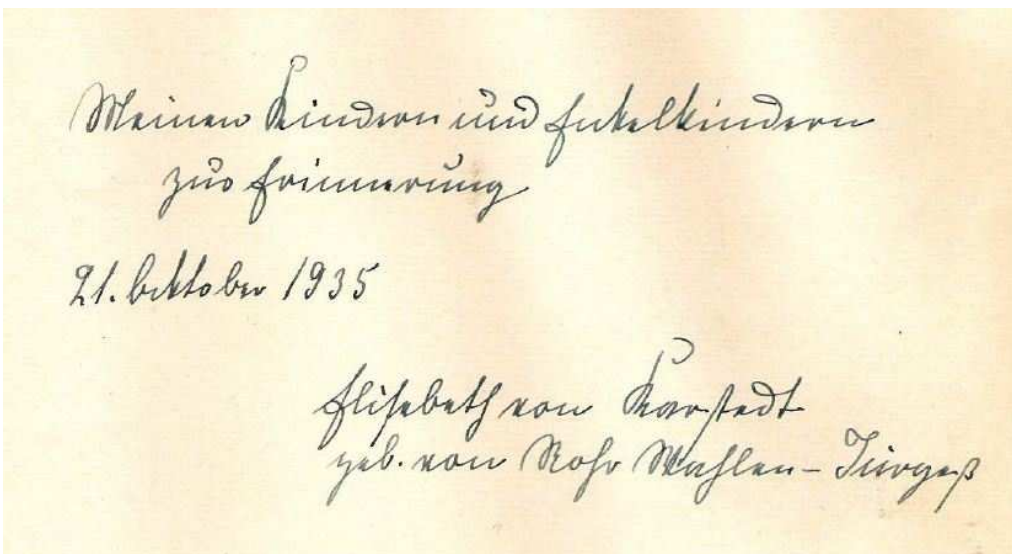 Meinen Kindern und Enkelkindern
zur Erinnerung
21. Oktober 1935
Elisabeth von Karstedt
geb. von Rohr Wahlen-Jürgaß